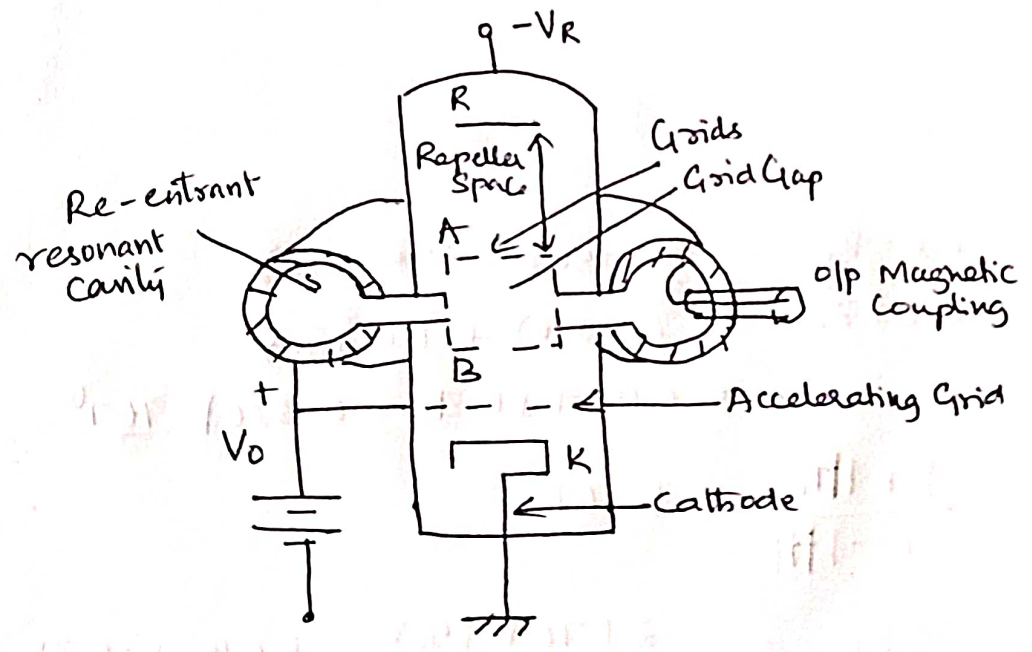 -VR
R
Repeller
Space
Grids
Grid Gap
Re-entrant
resonant
cavity
A
o/p Magnetic
Coupling
B
+
Accelerating Grid
Vo
K
Cathode